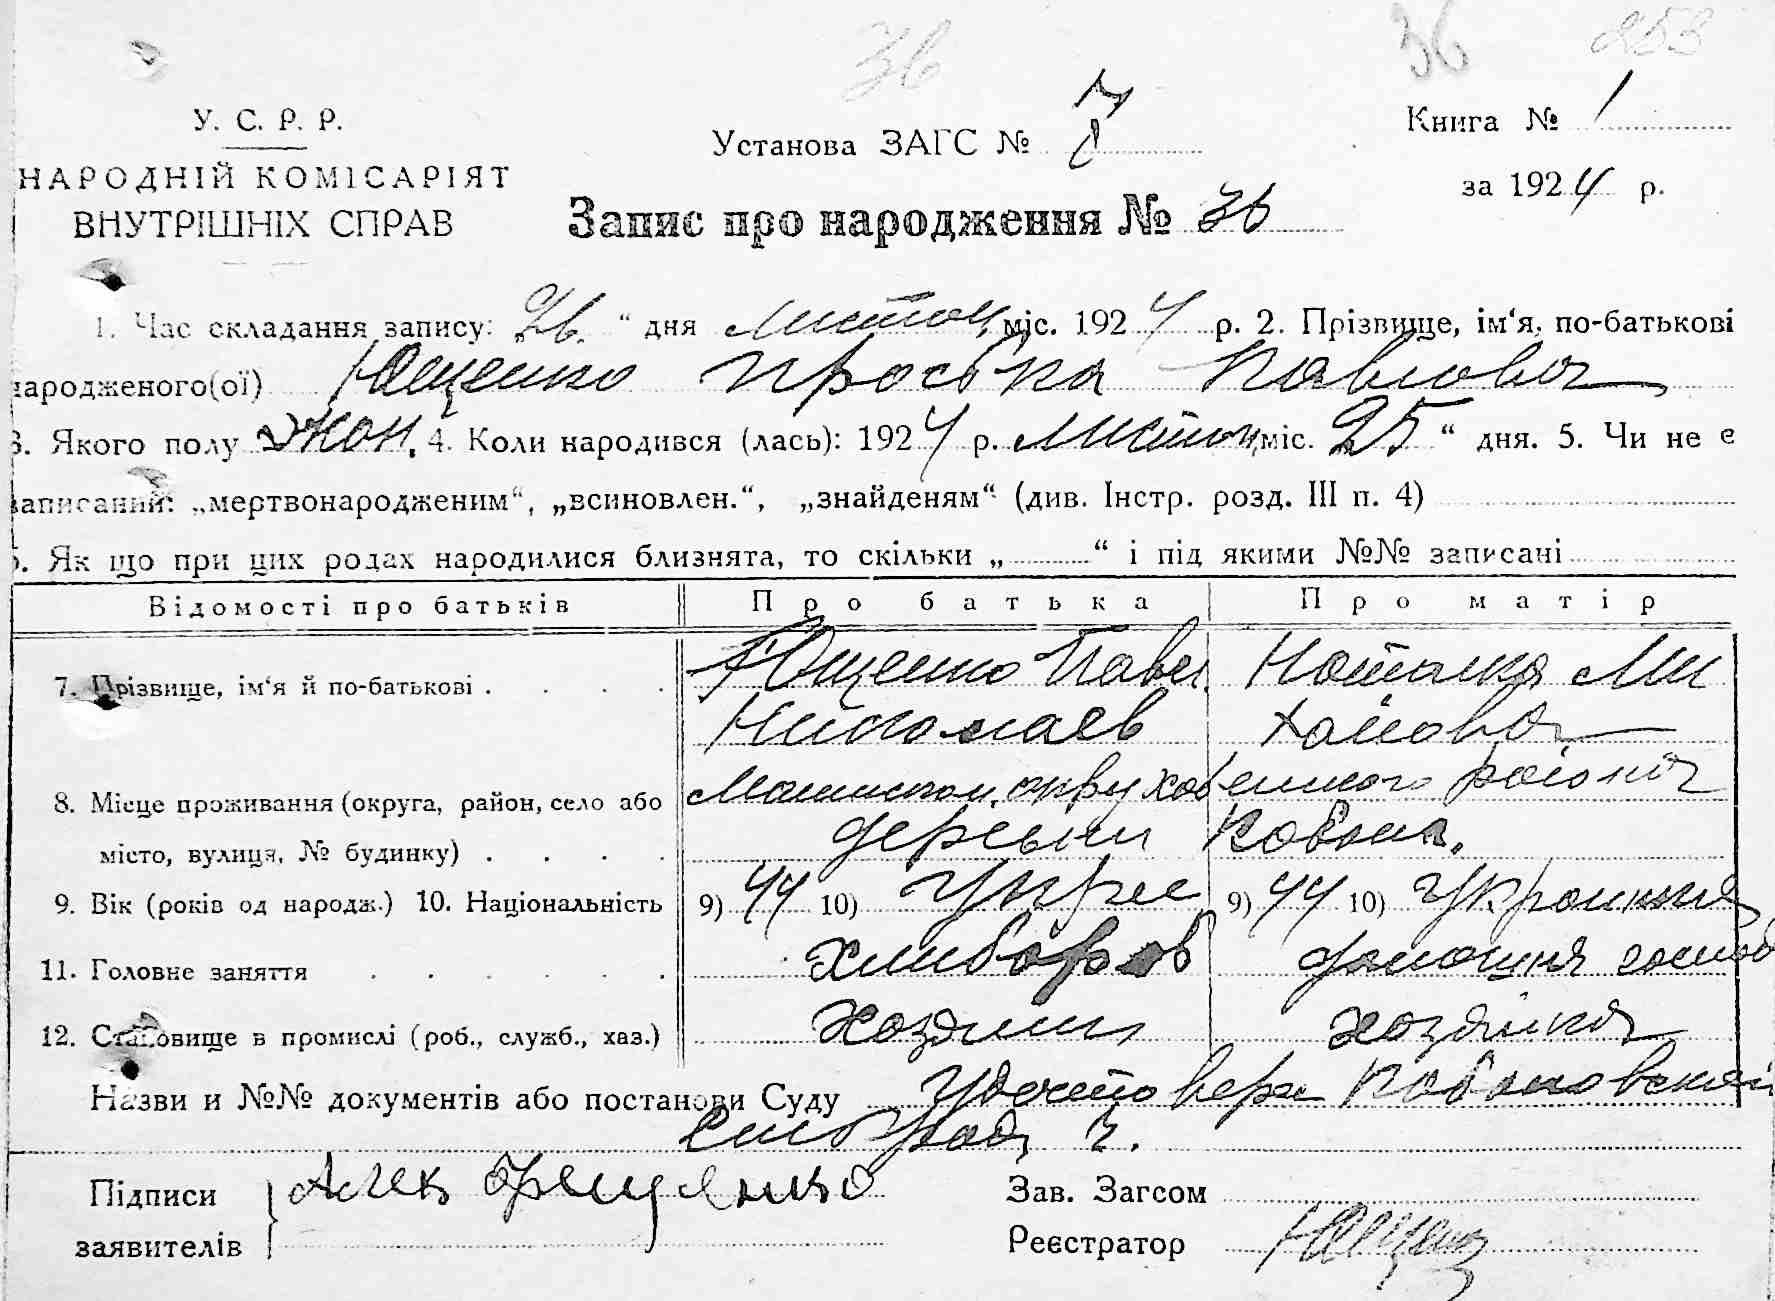 36 36 253
У. С. Р. Р.
НАРОДНІЙ КОМІСАРІЯТ
ВНУТРІШНІХ СПРАВ
Установа ЗАГС № 7
Книга № 1
за 1924 р.
Запис про народження № 36
1. Час складання запису: 26 “ дня Листоп. міс. 1924 р. 2. Прізвище, ім‘я, по-батькові
народженого(ої) Ющенко Проська Павлова
3. Якого полу жон. 4. Коли народився (лась): 1924 р. Листоп. міс. 25 “ дня. 5. Чи не є
записаний: „мертвонародженим“, „всиновлен.“, „знайденям“ (див. Інстр. розд. III п. 4)
6. Як що при цих родах народилися близнята, то скільки „ “ і під якими №№ записані
Відомості про батьків Про батька Про матір
7. Прізвище, ім‘я й по-батькові . . . . Ющенко Павел. Наталка Ми
Николаев хайлова
8. Місце проживання (округа, район, село або
місто, вулиця, № будинку) . . . . деревни
9. Вік (років од народж.) 10. Національність 9) 44 10) Укрее 9) 44 10) Украинка
11. Головне заняття . . . . . . Хлибороб домашня господ
12. Становище в промислі (роб., служб., хаз.) Хозяин хозяйка
Назви и №№ документів або постанови Суду Удостовере
Сильрад
Підписи Алек
заявителів
Зав. Загсом
Реєстратор Ющенко